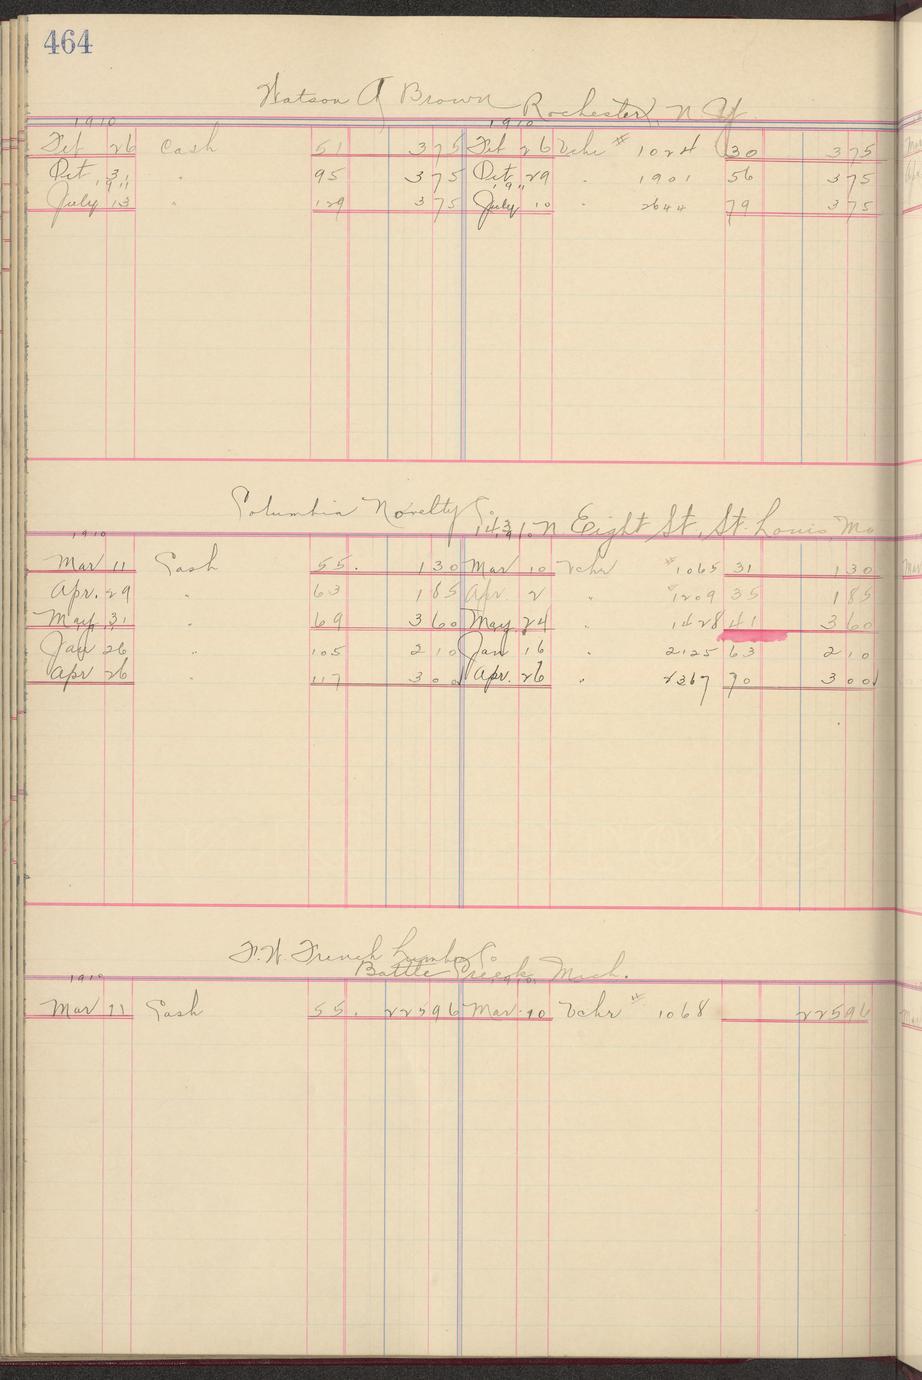 464
Watson A Brown Rochester, N Y.
1910 1910
Feb 26 Cash 51 375 Feb 26 Vchr # 1024 30 375
Oct 31 " 95 375 Oct 29 " 1901 56 375
1911 1911
July 13 " 129 375 July 10 " 2644 79 375
Columbia Novelty Co.
N Eight St, St. Louis, Mo
1910
Mar 11 Cash 55. 130 Mar 10 Vchr # 1065 31 130
Apr. 29 " 63 185 Apr 2 " # 1209 35 185
May 31 " 69 360 May 24 " 1428 41 360
Jan 26 " 105 210 Jan 16 " 2125 63 210
Apr 26 " 117 300 Apr. 26 " 2367 70 300
F. W. French Lumber Co
Battle Creek, Mich.
1910 1910
Mar 11 Cash 55. 22596 Mar 10 Vchr # 1068 22596